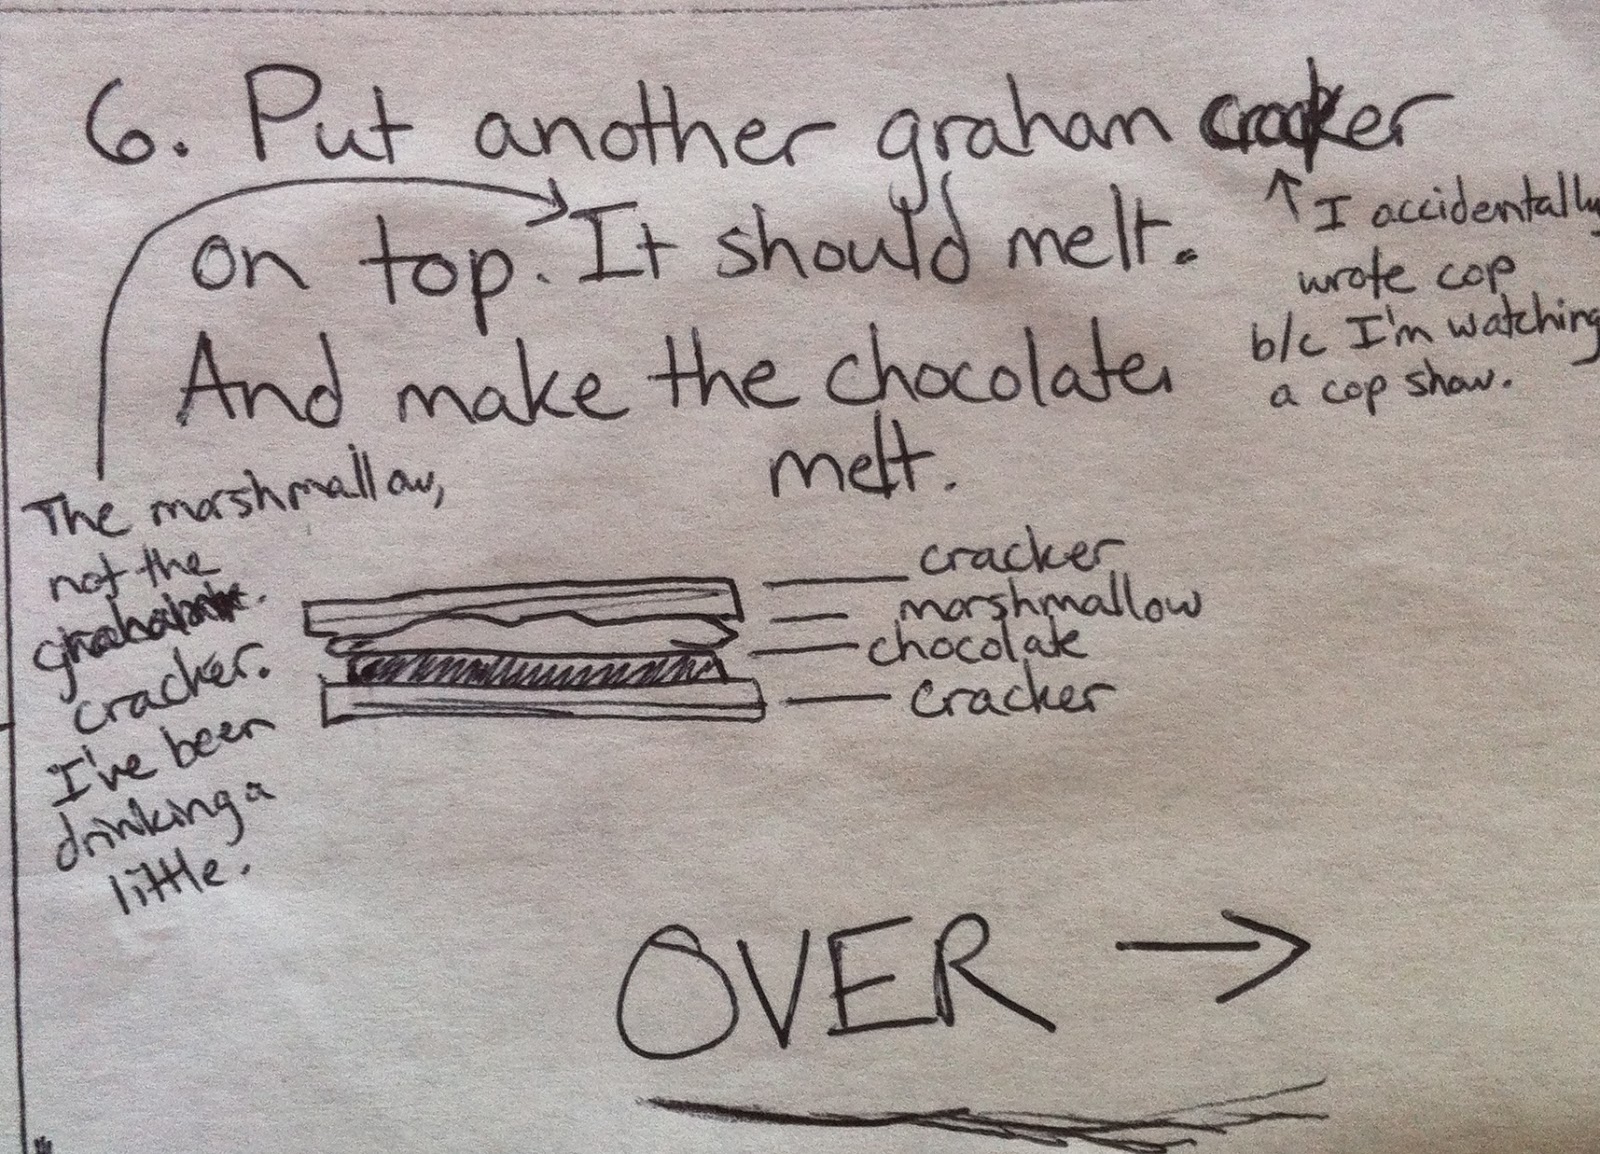 6. Put another graham cracker
on top. It should melt.
And make the chocolate
melt.
↑ I accidentally
wrote cop
b/c I'm watching
a cop show.
The marshmallow,
not the
cracker.
I've been
drinking a
little.
cracker
marshmallow
chocolate
cracker
OVER →